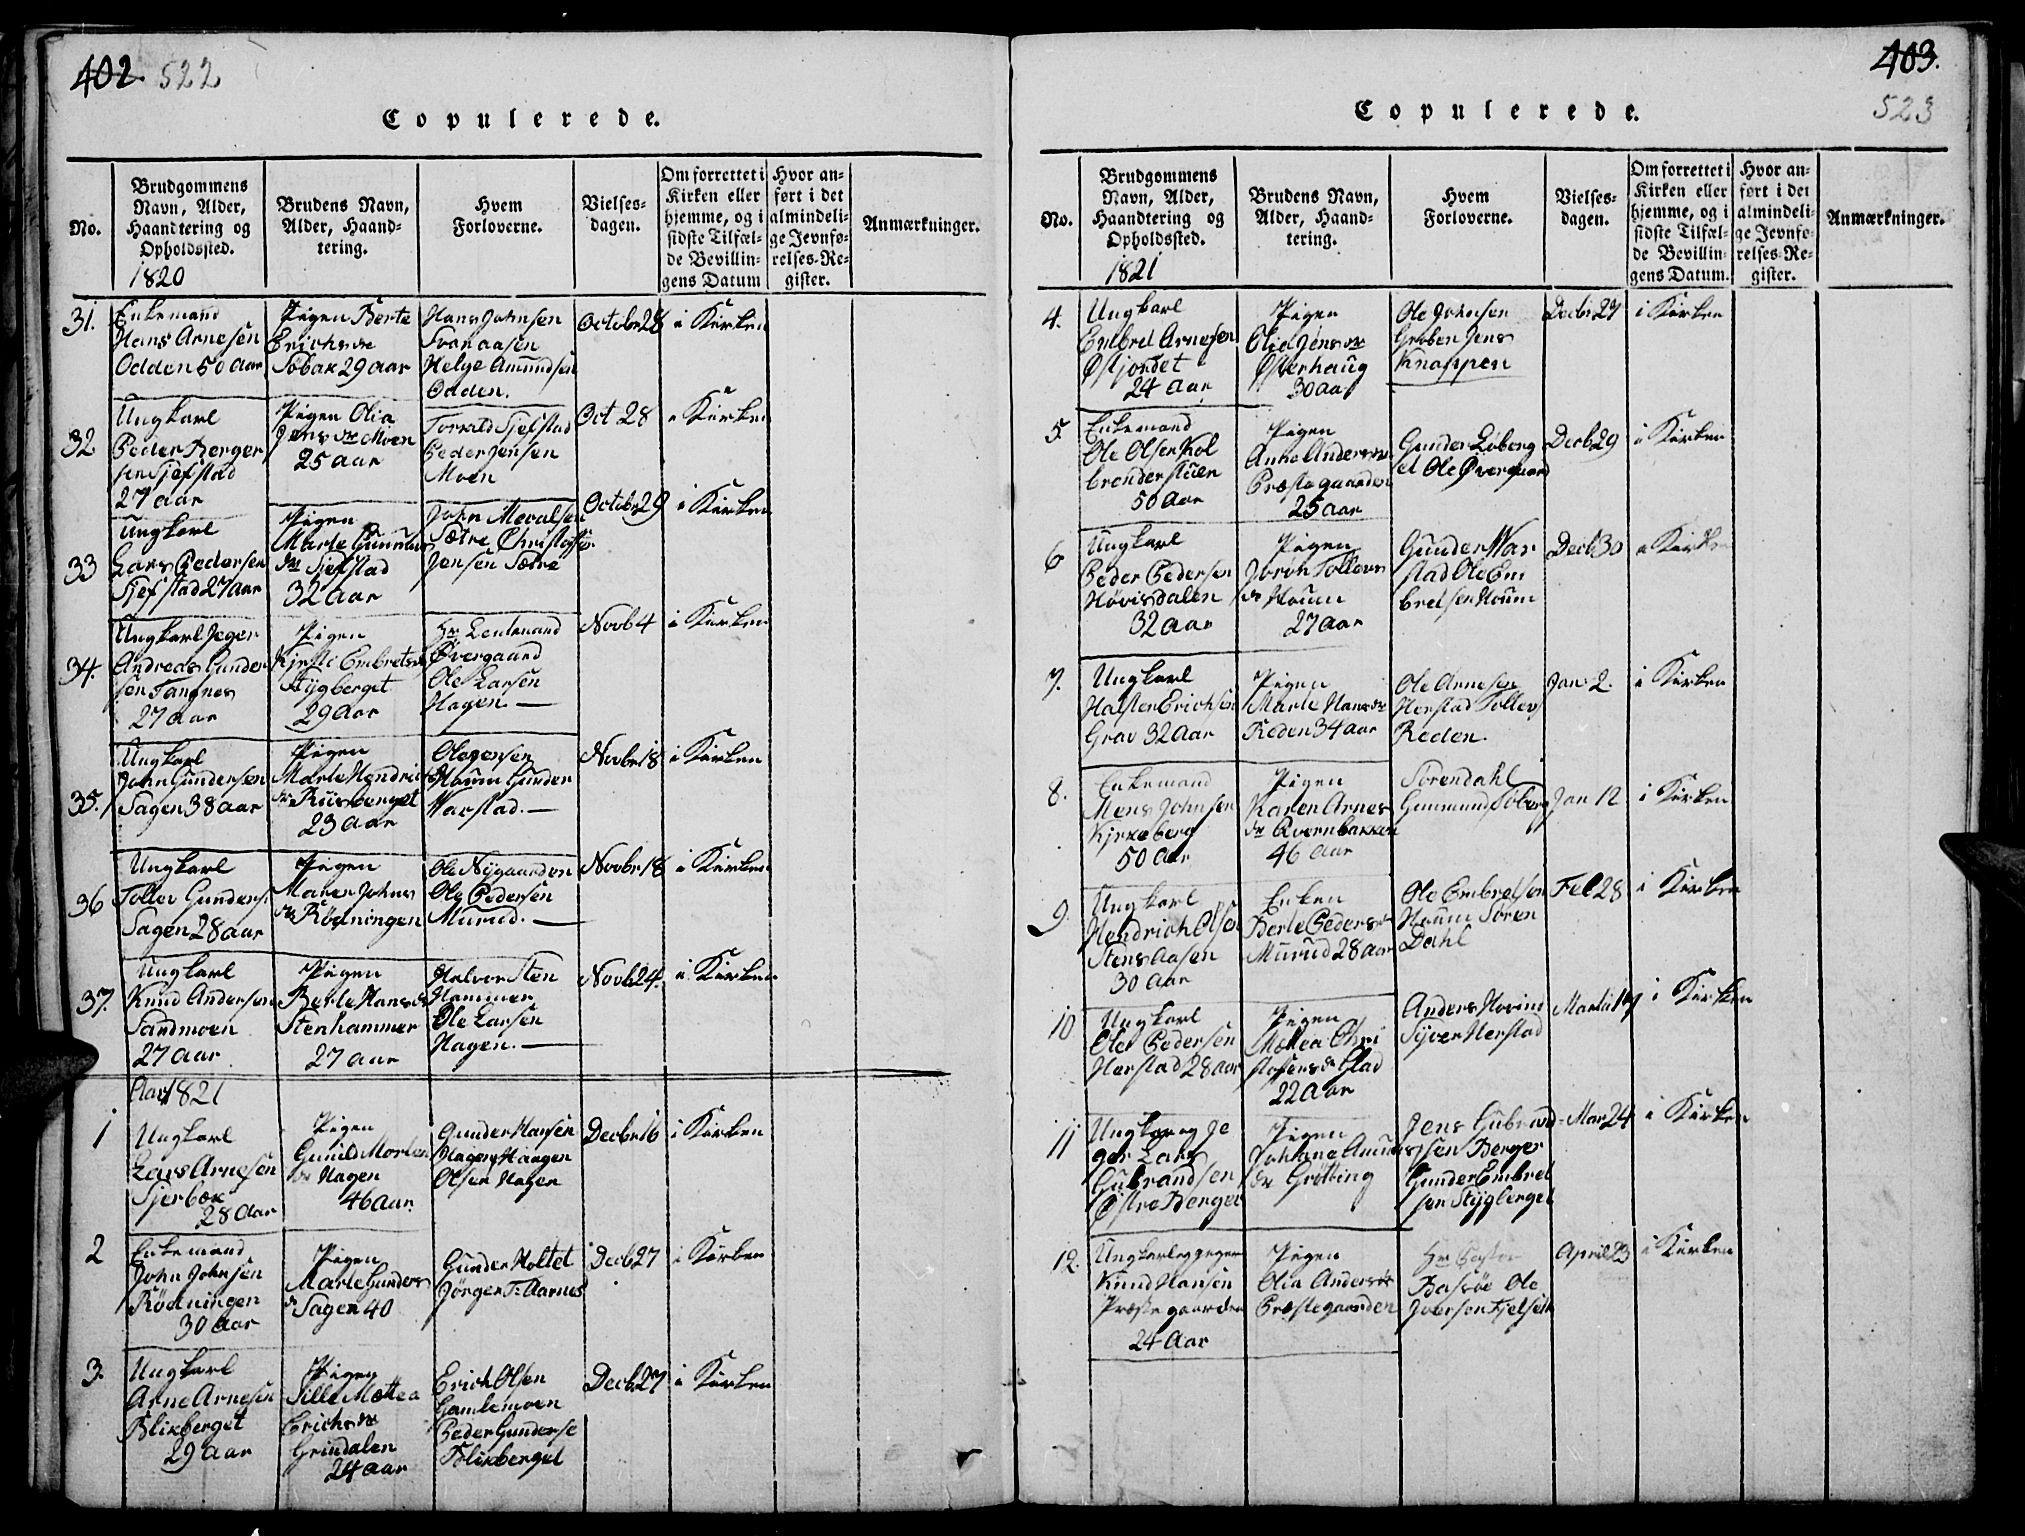 402. 522
Copulerede.
No.
Brudgommens
Navn, Alder,
Haandtering og
Opholdssted.
1820
Brudens Navn,
Alder, Haand-
tering.
Hvem
Forloverne.
Vielses-
dagen.
Om forrettet i
Kirken eller
hjemme, og i
sidste Tilfæl-
de Bevillin-
gens Datum
Hvor an-
ført i det
almindeli-
ge Jevnfø-
relses-Re-
gister.
Anmærkninger.
31.
Enkemand
Hans Arnesen
Odden 50 Aar
Pigen Berte
Erichsdr
Sobak 29 aar
Hans Johnsen
Svanaasen
Helge Amundsen
Odden.
Octobr 28
i Kirken
32
Ungkarl
Peder Berger
sen Sjefstad
27 aar
Pigen Olia
Jensdr Moen
25 aar
Torvald Sjefstad
Peder Jensen
Moen
Oct 28
i Kirken
33
Ungkarl
Lars Pedersen
Sjefstad 27 aar
Pigen
Marte
dr Sjefstad
32 aar
John
Sætre
Jensen Sætre
Octobr 29
i Kirken
34.
Ungkarl Jeger
Andreas Gunder
sen Tangnes
27 aar
Pigen
Kjersti Embretsdr
Stygberget
29 Aar
Hr Leutenand
Øvergaard
Ole Larsen
Hagen. —
Novb 4
i Kirken
35.
Ungkarl
John Gundersen
Sagen 38 aar
Pigen
Marte Hendrics
dr Riisberget
23 aar
Ole Jensen
Houm Gunder
Warstad. —
Novbr 18
i Kirken
36
Ungkarl
Tollev Gunders.
Sagen 28 aar
Pigen
Maren Johns
dr Rødningen
Ole Nygaarden
Ole Pedersen
Murud. —
Novbr 18
i Kirken
37.
Ungkarl
Knud Andersen
Sandmoen
27 aar
Pigen
Berte Hansdr
Stenhammer
27 aar
Halvor Sten
Hammer
Ole Larsen
Hagen. —
Novb 24.
i Kirken
Aar 1821
1
Ungkarl
Lars Arnesen
Sjerbæk
28 Aar
Pigen
Gunild Morten
dr Hagen
46 Aar.
Gunder Hansen
Hagen Haagen
Olsen Hagen
Decbr 16
i Kirken
2
Enkemand
John Johnsen
Rødningen
30 Aar
Pigen
Marte Gunders
dr Sagen 40
Gunder Holtet
Jørgen T. Aarnes
Decb 27
i Kirken
3.
Ungkarl
Arne Arnesen
Blikberget
29 aar
Pigen
Sille Mattea
Erichsdr
Grindalen
24 aar
Erich Olsen
Gamlemoen
Peder Gunderse
Blikberget
Decb 27
i Kirken
403.
523
Copulerede.
No.
Brudgommens
Navn, Alder,
Haandtering og
Opholdssted.
1821
Brudens Navn,
Alder, Haand-
tering.
Hvem
Forloverne.
Vielses-
dagen.
Om forrettet i
Kirken eller
hjemme, og i
sidste Tilfæl-
de Bevillin-
gens Datum.
Hvor an-
ført i det
almindeli-
ge Jevnfø-
relses-Re-
gister.
Anmærkninger.
4.
Ungkarl
Embret Arnesen
Østjordet
24 Aar
Pigen
Olia Jensdr
Østerhaug
30 aar
Ole Johnsen
Groben Jens
Knappen
Decbr 27
i Kirken
5.
Enkemand
Ole Olsen Kol
brenderstuen
50 Aar
Pigen
Anne Andersdr
Præstegaarden
25 aar
Gunder Løberg
et Ole Øvergaard
Decb 29
i Kirken
6
Ungkarl
Peder Pedersen
Hovisdalen
32 Aar
Pigen
Joron Tollevs
dr Houm
27 aar
Gunder War
stad Ole Em
bretsen Houm
Decb 30
i Kirken
7.
Ungkarl
Halsten Erichsen
Grav 32 Aar
Pigen
Marte Hansdr
Reden 34 aar
Ole Arnesen
Herstad Tollev
Reden.
Jan: 2.
i Kirken
8.
Enkemand
Mens Johnsen
Kirkeberg
50 Aar
Pigen
Karen Arnes
dr Qvernbakken
46 Aar
Sørendahl
Gunmund Soberg
Jan 12
i Kirken
9.
Ungkarl
Hendrich Olsen
Stensaasen
30 Aar
Enken
Berte Pedersdr
Murud 28 aar
Ole Embretsen
Houm Søren
Dahl
Feb 28
i Kirken
10
Ungkarl
Ole Pedersen
Herstad 28 aar
Pigen
Mattea Chri
stofersdr Gstad
22 Aar
Anders Hovind
Syver Herstad
Martii 17
i Kirken
11
Ungkarl og Je
ger Lars
Gubrandsen
Østre Berger
Pigen
Johane Amunds
dr Grøtting
Jens Gubrand-
sen Berger
Gunder Embret
sen Stygberget
Mar 24
i Kirken
12.
Ungkarl og Jeger
Knud Hansen
Præstegaarden
24 Aar
Pigen
Olia Andersdr
Præstegaarden
Hr Pastor
Bassøe Ole
Iversen Fjelset
April 23
i Kirken